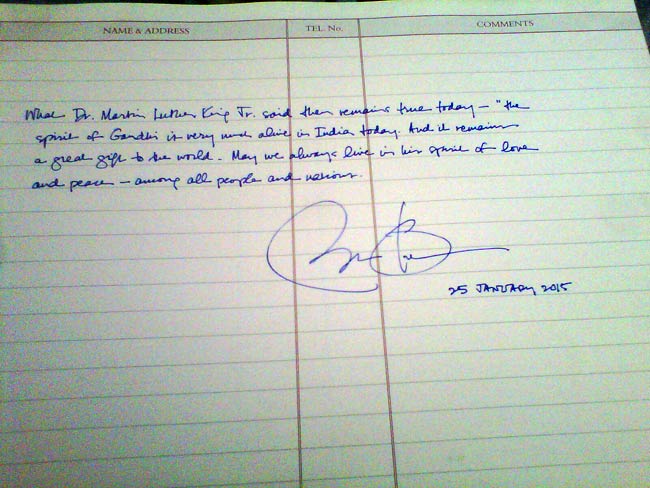 NAME & ADDRESS TEL. No. COMMENTS
What Dr. Martin Luther King Jr. said then remains true today – "the
spirit of Gandhi is very much alive in India today. And it remains
a great gift to the world. May we always live in his spirit of love
and peace – among all people and nations.
25 JANUARY 2015